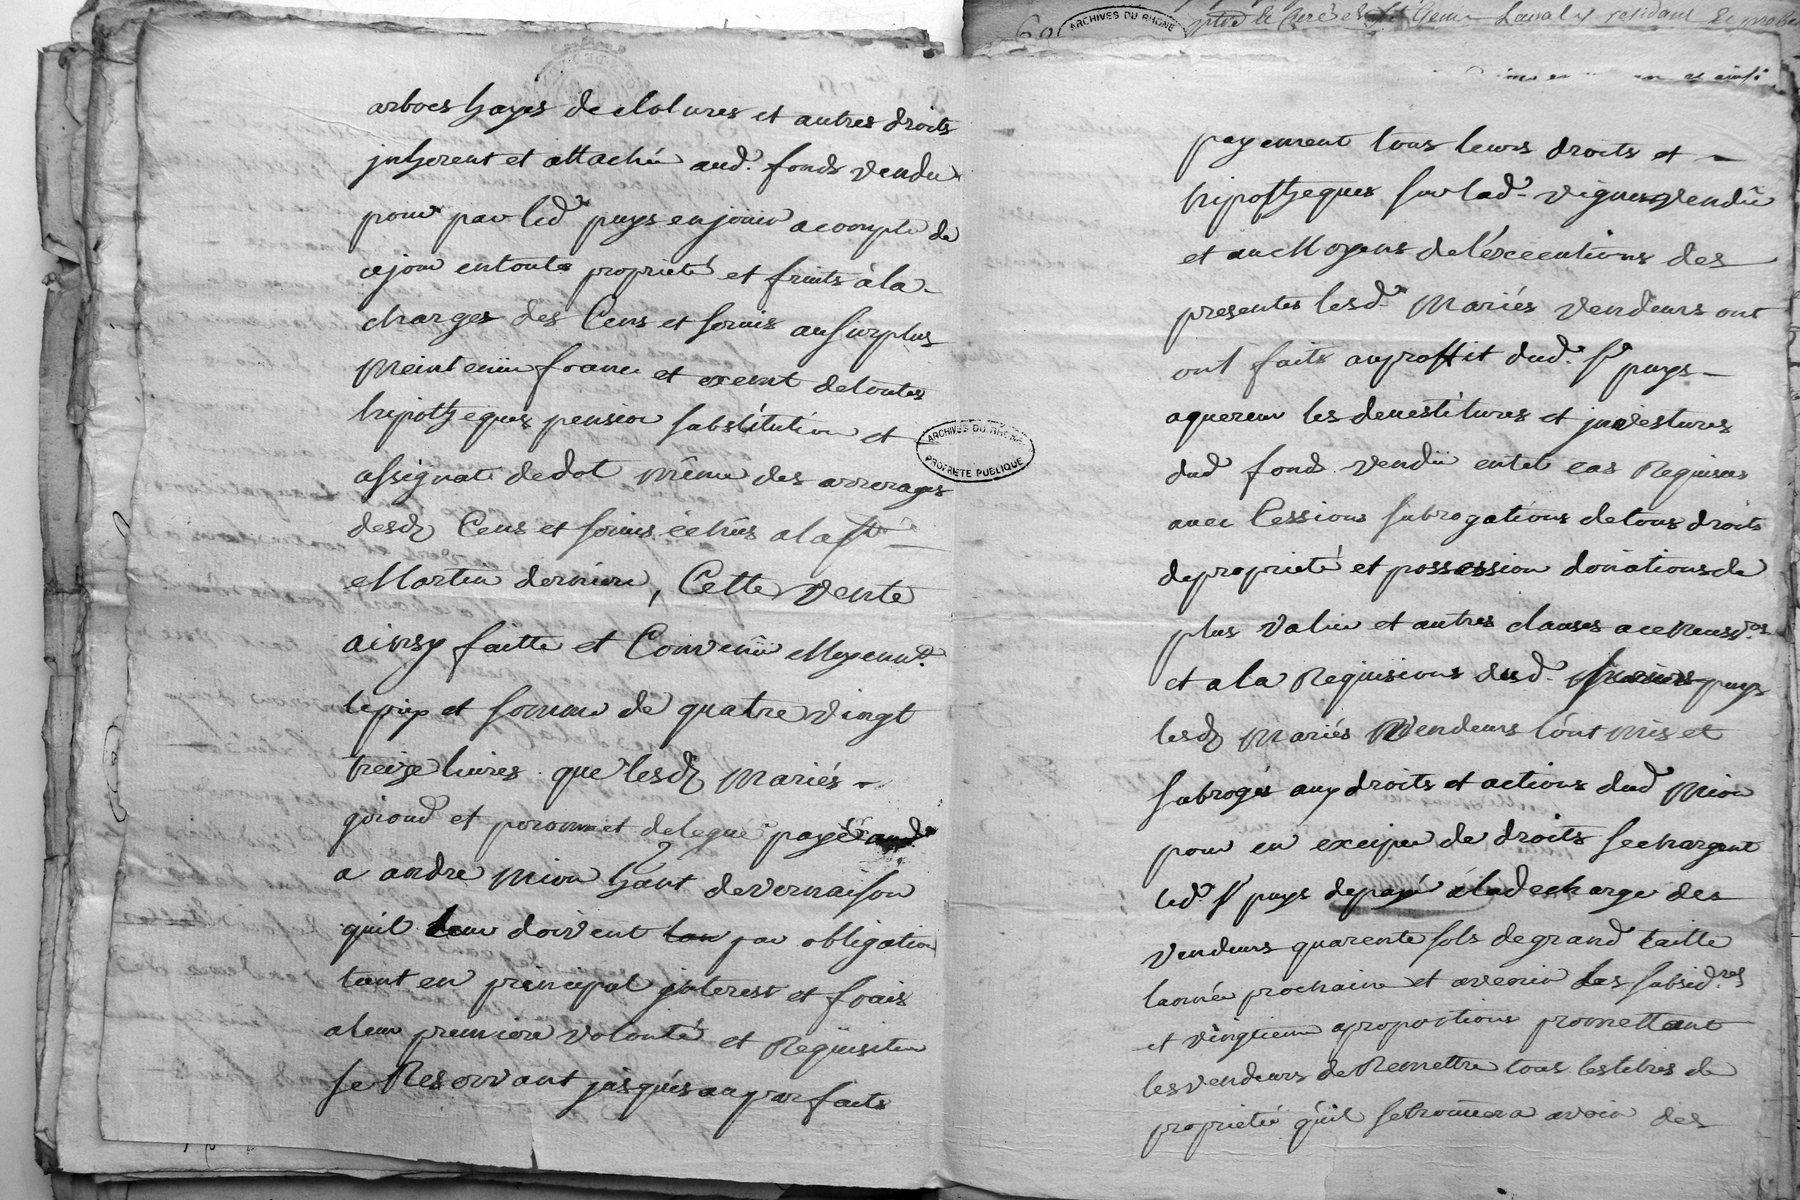 arbres hayes de clotures et autres droits
inherent et attachée aud. fonds vendu
pour par led. puys en jouir acompte de
ce jour en toute propriété et fruits à la
charges des Cens et servis au surplus
Meintenüe franc et exemt de toutes
hipotheques pension substitution et
assignat de dot même des arrerages
desd. Cens et servis échûs a la st
Martin derniere, Cette vente
ainsy faitte et Convenüe Moyennt.
le prix et somme de quatre vingt
treize livres que lesd. mariés
giroud et peronnet delegué payé
a andré Mion hant de vernaison
quil leur doivent par obligation
tant en principal interest et frais
a leur premiere volonté et Requisition
se Reservant jusques au parfaits
ARCHIVES DU RHONE
PROPRIETE PUBLIQUE
ARCHIVES DU RHONE
et ainsi
payement tous leurs droits et
hipotheques sur lad. vignes vendüe
et au Moyens de l'execcutions des
presentes lesd. Mariés vendeurs ont
ont faits au proffit dud. sr. puys
aquereur les devestitures et investures
dud fond vendüe en tel cas Requises
avec Cessions subrogations de tous droits
de proprieté et possession donations de
plus value et autres clauses
et a la Requisions dud. puys
lesd. Mariés Vendeurs l'ont mis et
subrogés aux droits et actions dud Mion
pour en exciper de droits se chargent
led. sr. puys de payé à la decharge des
vendeurs quarente sols de grand taille
lannée prochaine et avenir les subsid.res
et vingtieme a proportions promettant
les vendeurs de Remettre tous les titres de
proprietée quil se trouvera avoir des